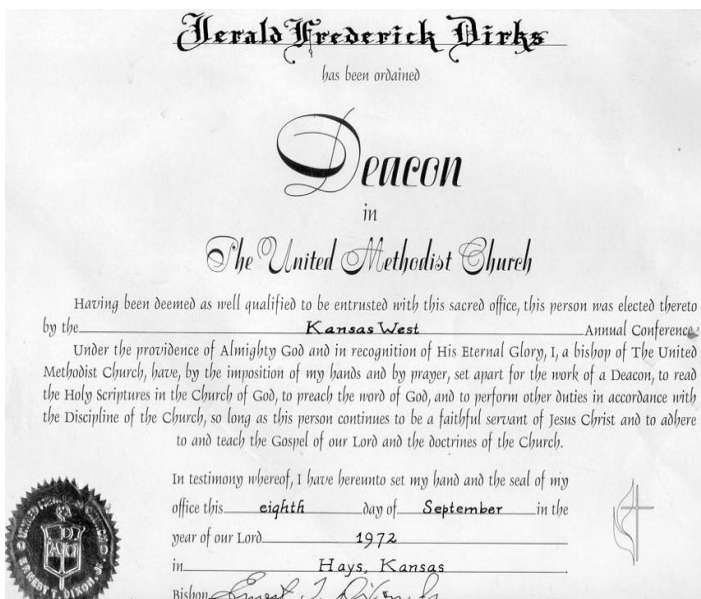 Jerald Frederick Dirks
has been ordained
Deacon
in
The United Methodist Church
Having been deemed as well qualified to be entrusted with this sacred office, this person was elected thereto
by the Kansas West Annual Conference.
Under the providence of Almighty God and in recognition of His Eternal Glory, I, a bishop of The United
Methodist Church, have, by the imposition of my hands and by prayer, set apart for the work of a Deacon, to read
the Holy Scriptures in the Church of God, to preach the word of God, and to perform other duties in accordance with
the Discipline of the Church, so long as this person continues to be a faithful servant of Jesus Christ and to adhere
to and teach the Gospel of our Lord and the doctrines of the Church.
In testimony whereof, I have hereunto set my hand and the seal of my
office this eighth day of September in the
year of our Lord 1972
in Hays, Kansas.
Bishop Ernest T. Dixon, Jr.
ERNEST T. DIXON, JR.